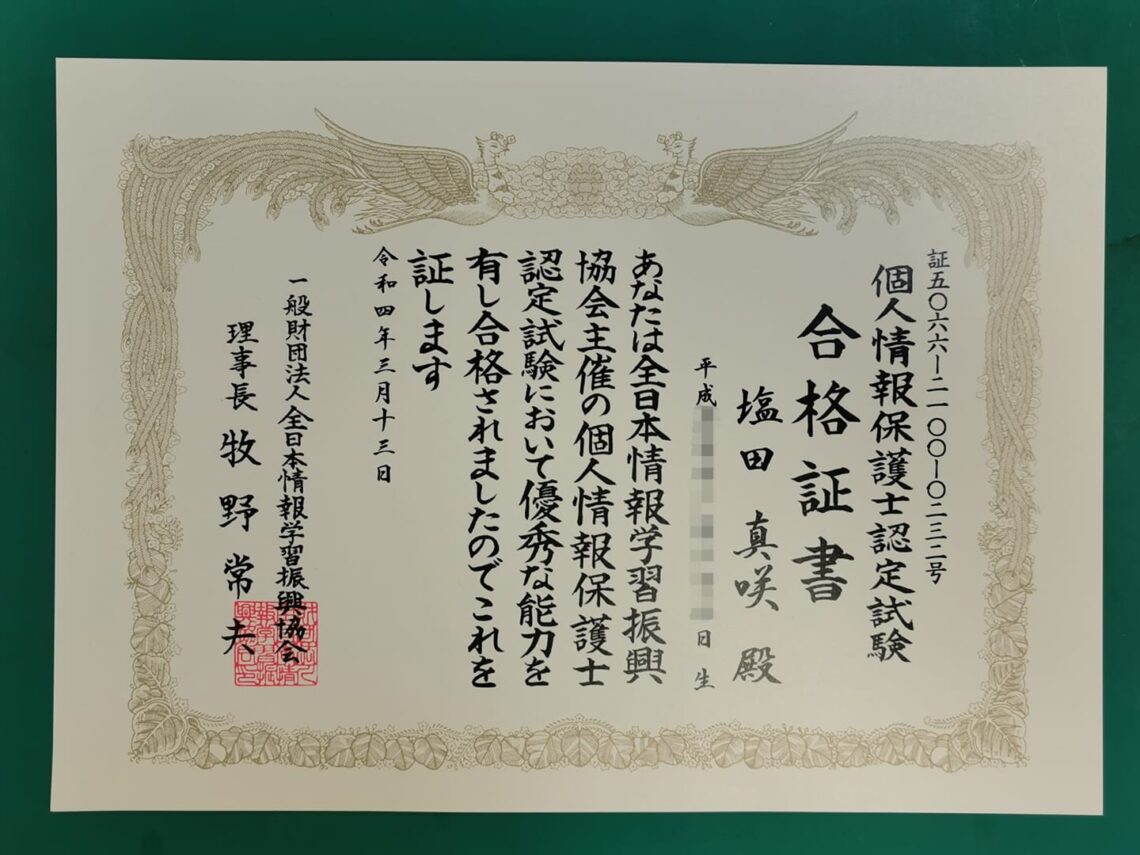 証五〇六六ー二一〇〇ー〇二三二号
個人情報保護士認定試験
合格証書
塩田 真咲 殿
平成 日生
あなたは全日本情報学習振興
協会主催の個人情報保護士
認定試験において優秀な能力を
有し合格されましたのでこれを
証します
令和四年三月十三日
一般財団法人全日本情報学習振興協会
理事長 牧野常夫